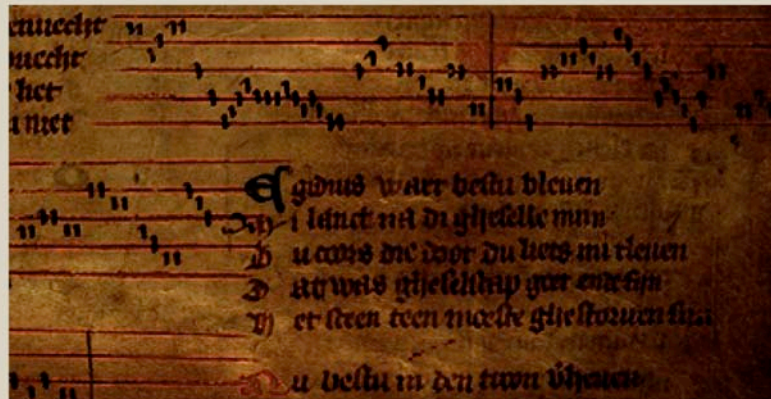 enuecht
nuecht
het
u niet
Egidius waer bestu bleuen
Mi lanct na di gheselle mijn
Du coors die doot du liets mi tleuen
Dat was gheselscap goet ende fijn
Het sceen teen moeste ghestoruen sijn
Nu bestu in den troon v̓heuen